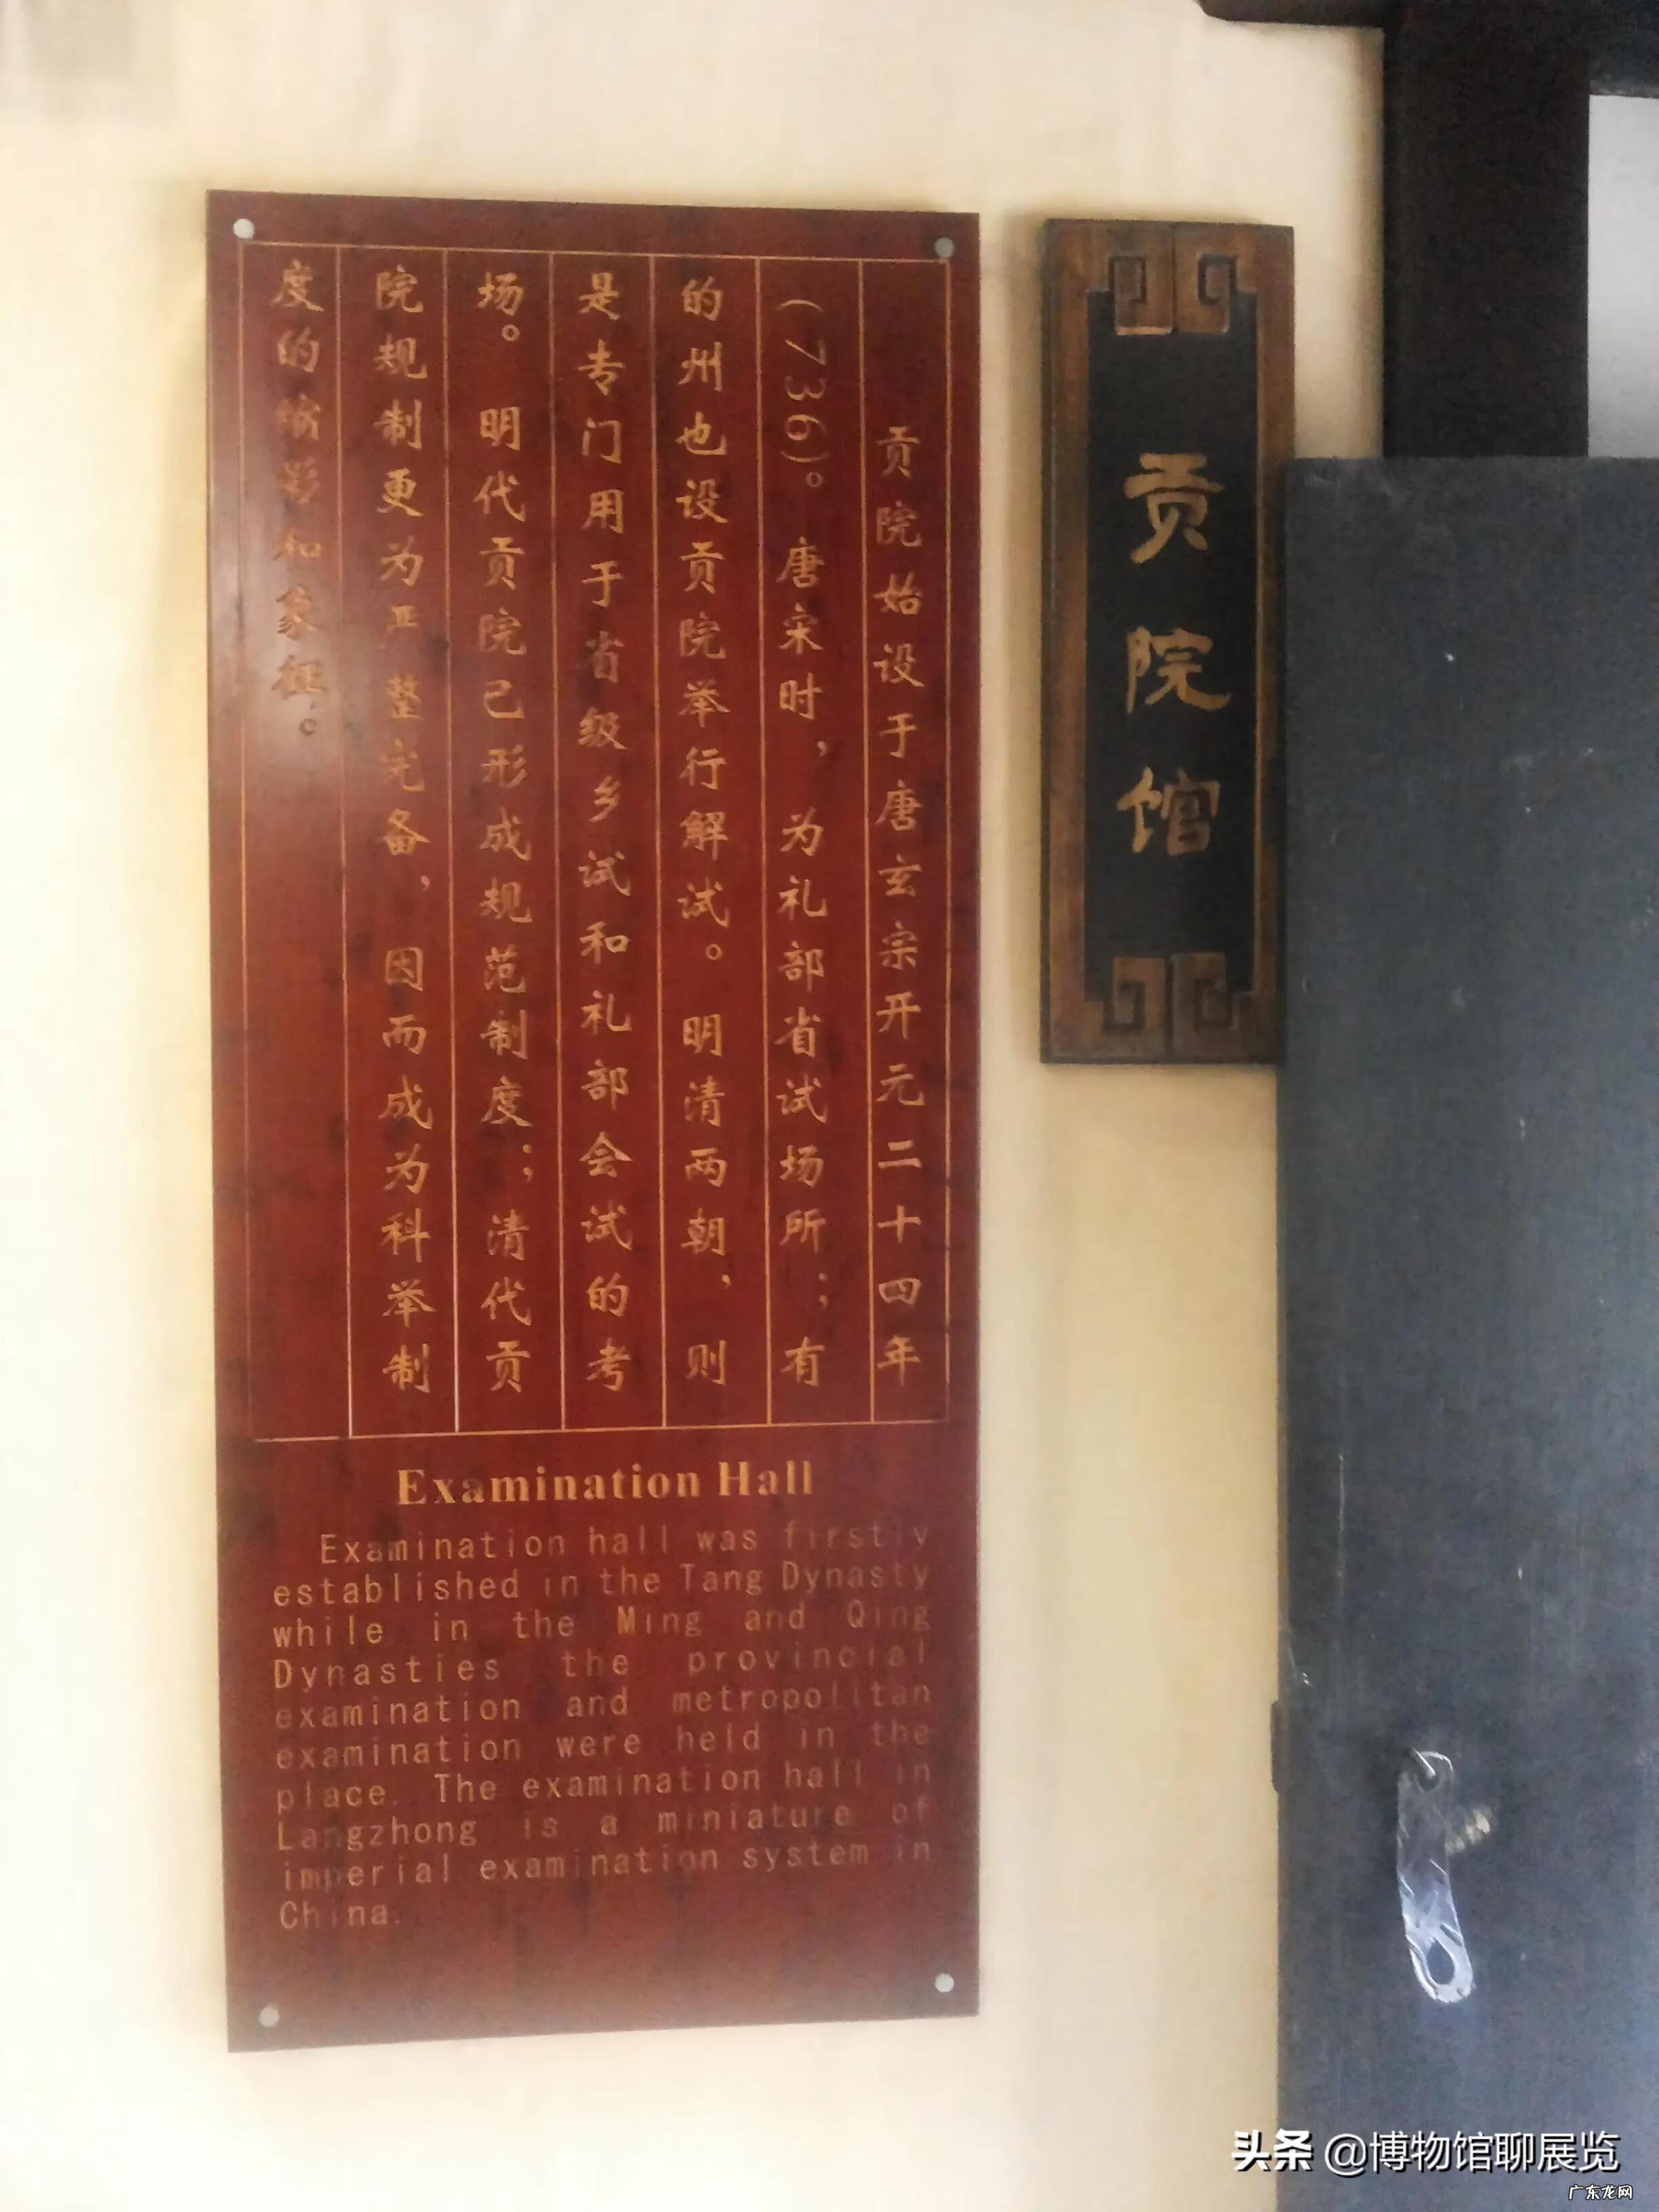 贡院馆
贡院始设于唐玄宗开元二十四年
(736)。唐宋时，为礼部省试场所；有
的州也设贡院举行解试。明清两朝，则
是专门用于省级乡试和礼部会试的考
场。明代贡院已形成规范制度；清代贡
院规制更为严整完备，因而成为科举制
度的缩影和象征。
Examination Hall
Examination hall was firstly
established in the Tang Dynasty
while in the Ming and Qing
Dynasties the provincial
examination and metropolitan
examination were held in the
place. The examination hall in
Langzhong is a miniature of
imperial examination system in
China.
头条 @博物馆聊展览
广东龙网